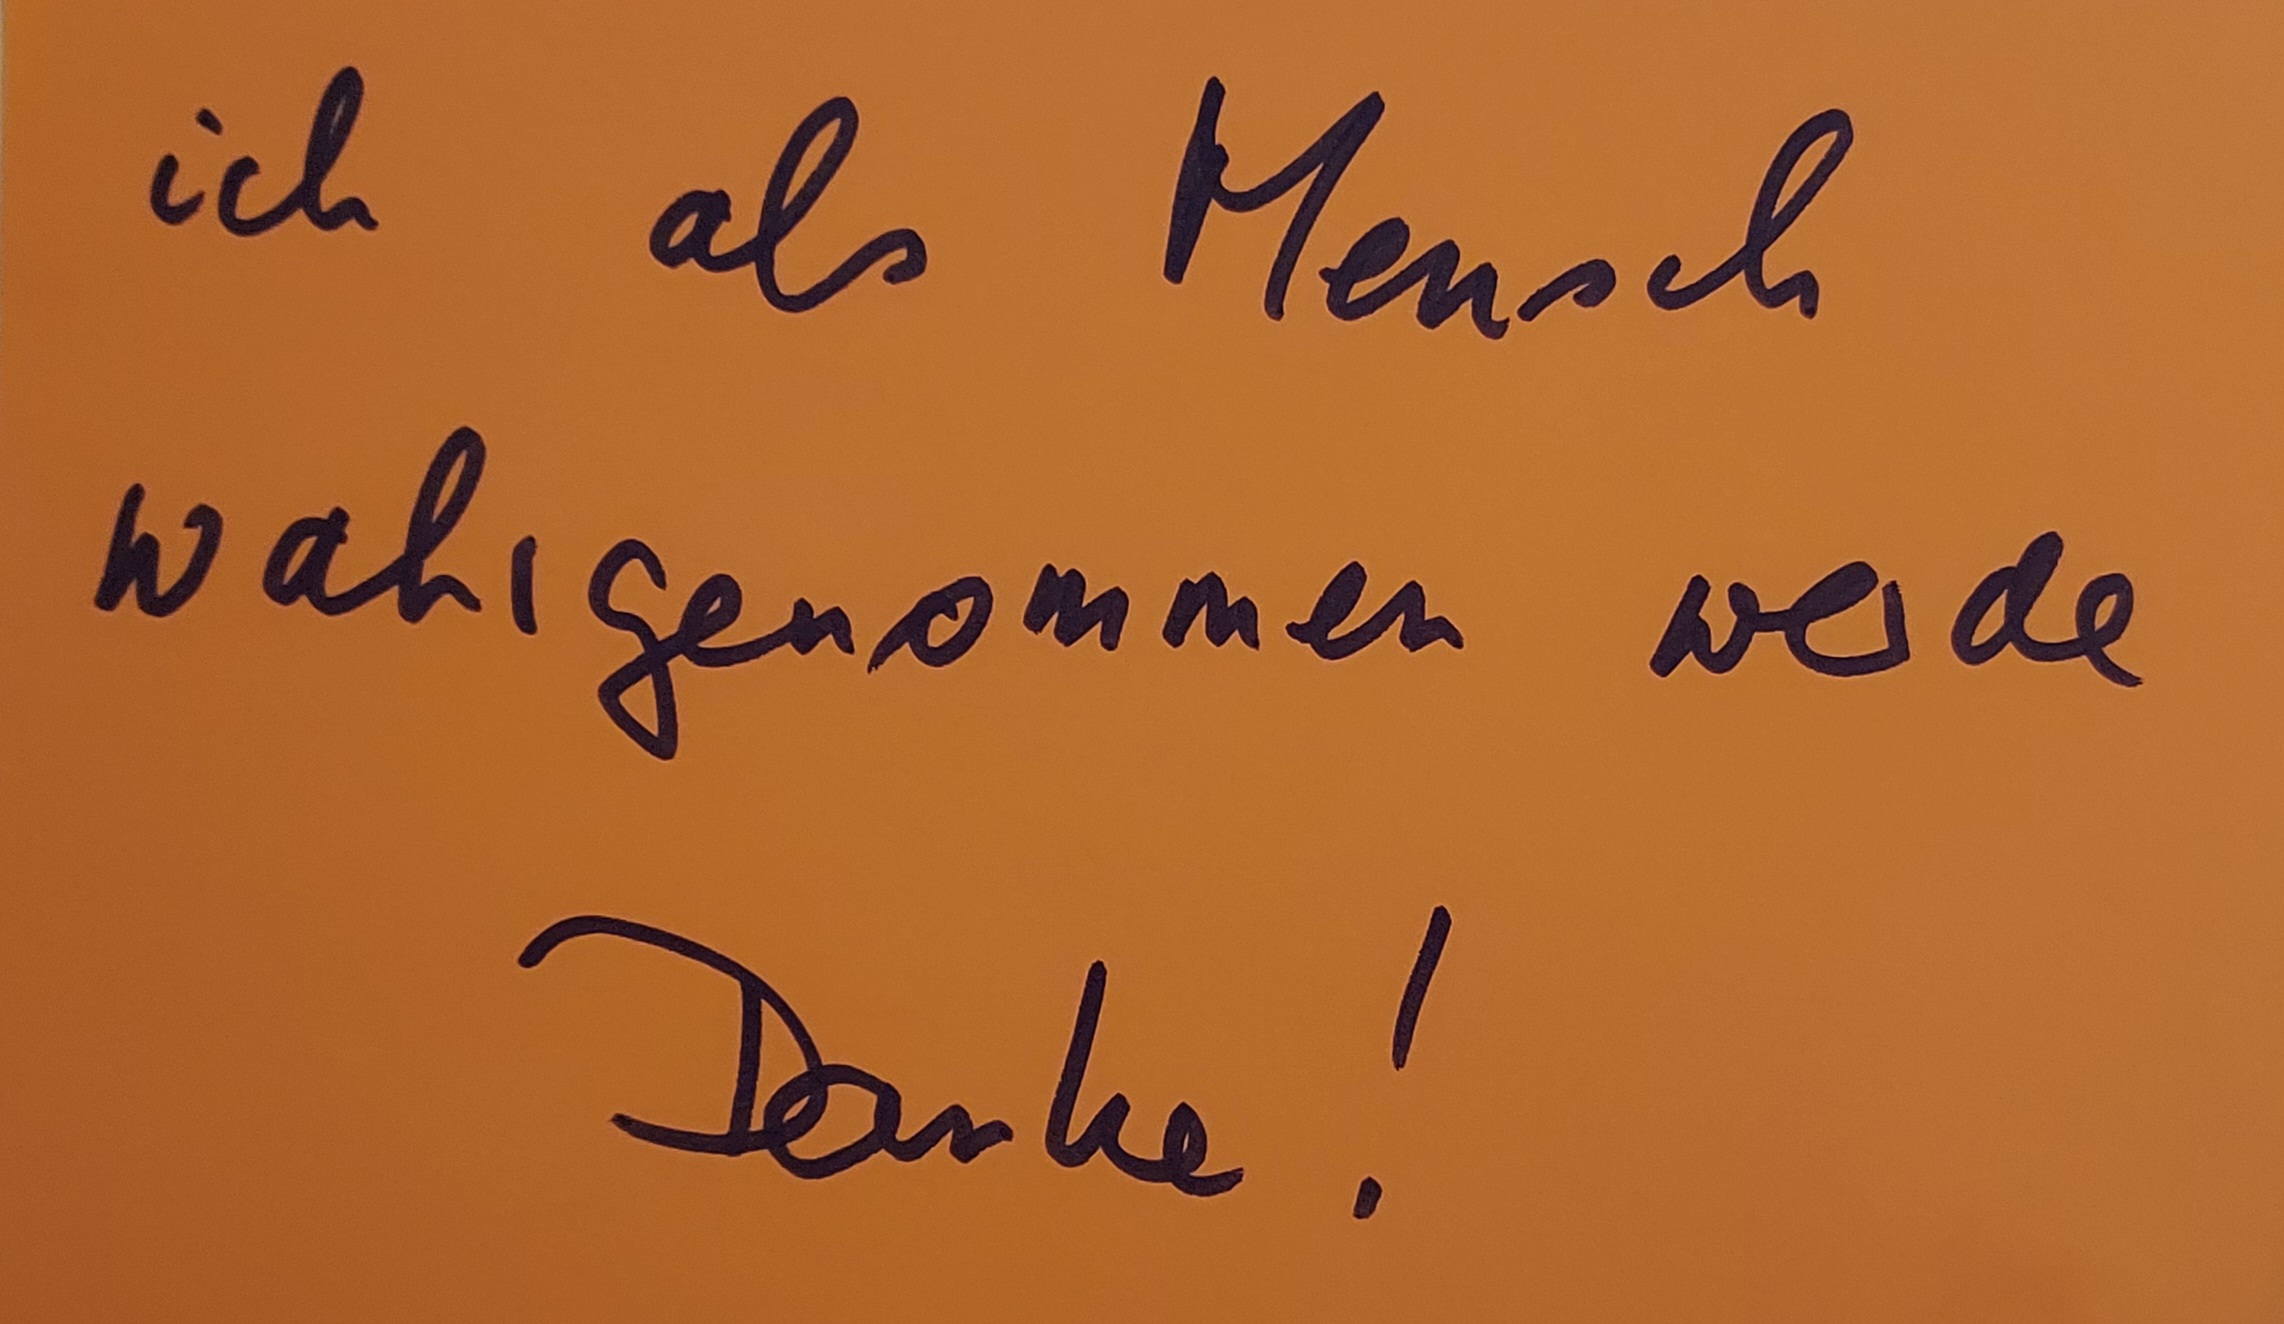 ich als Mensch
wahrgenommen werde
Danke!